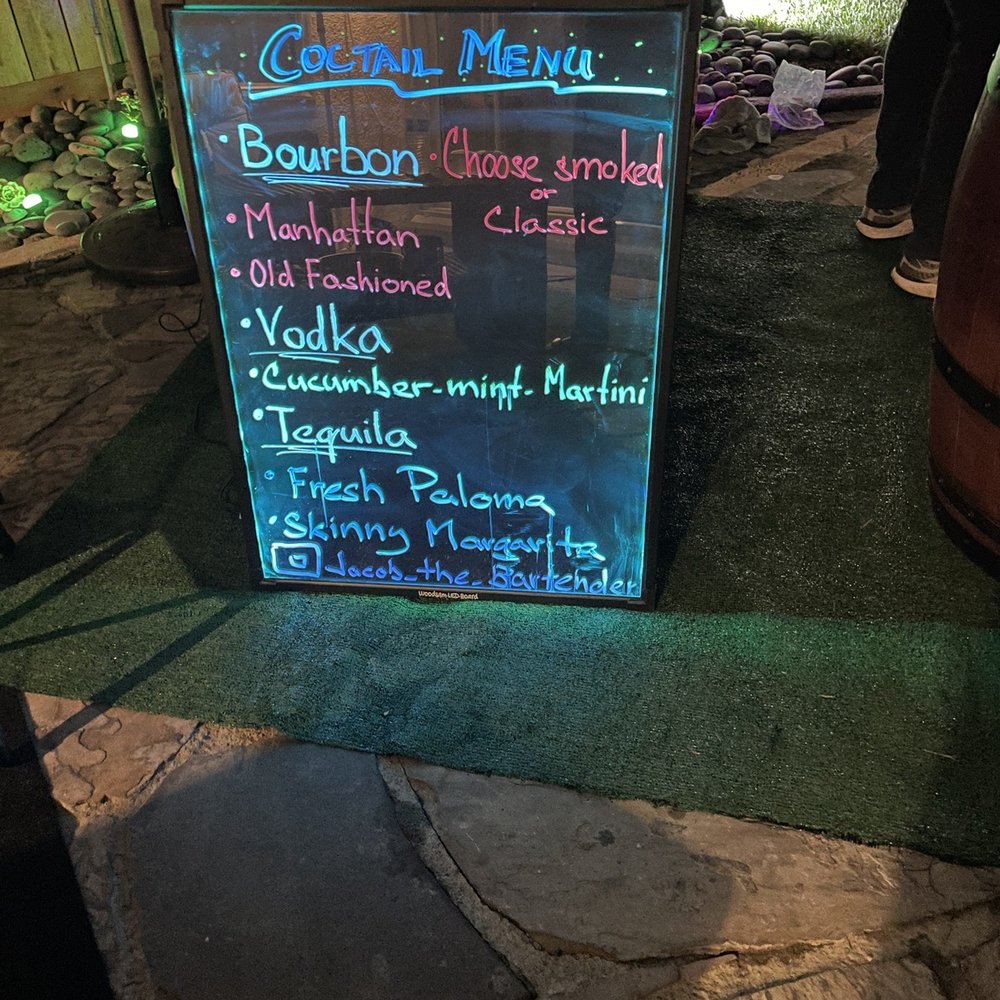 COCTAIL MENU
• Bourbon
• Choose smoked
or
Classic
• Manhattan
• Old Fashioned
• Vodka
• Cucumber-mint-Martini
• Tequila
• Fresh Paloma
• Skinny Margarita
Jacob_the_Bartender
Woodsam LED Board